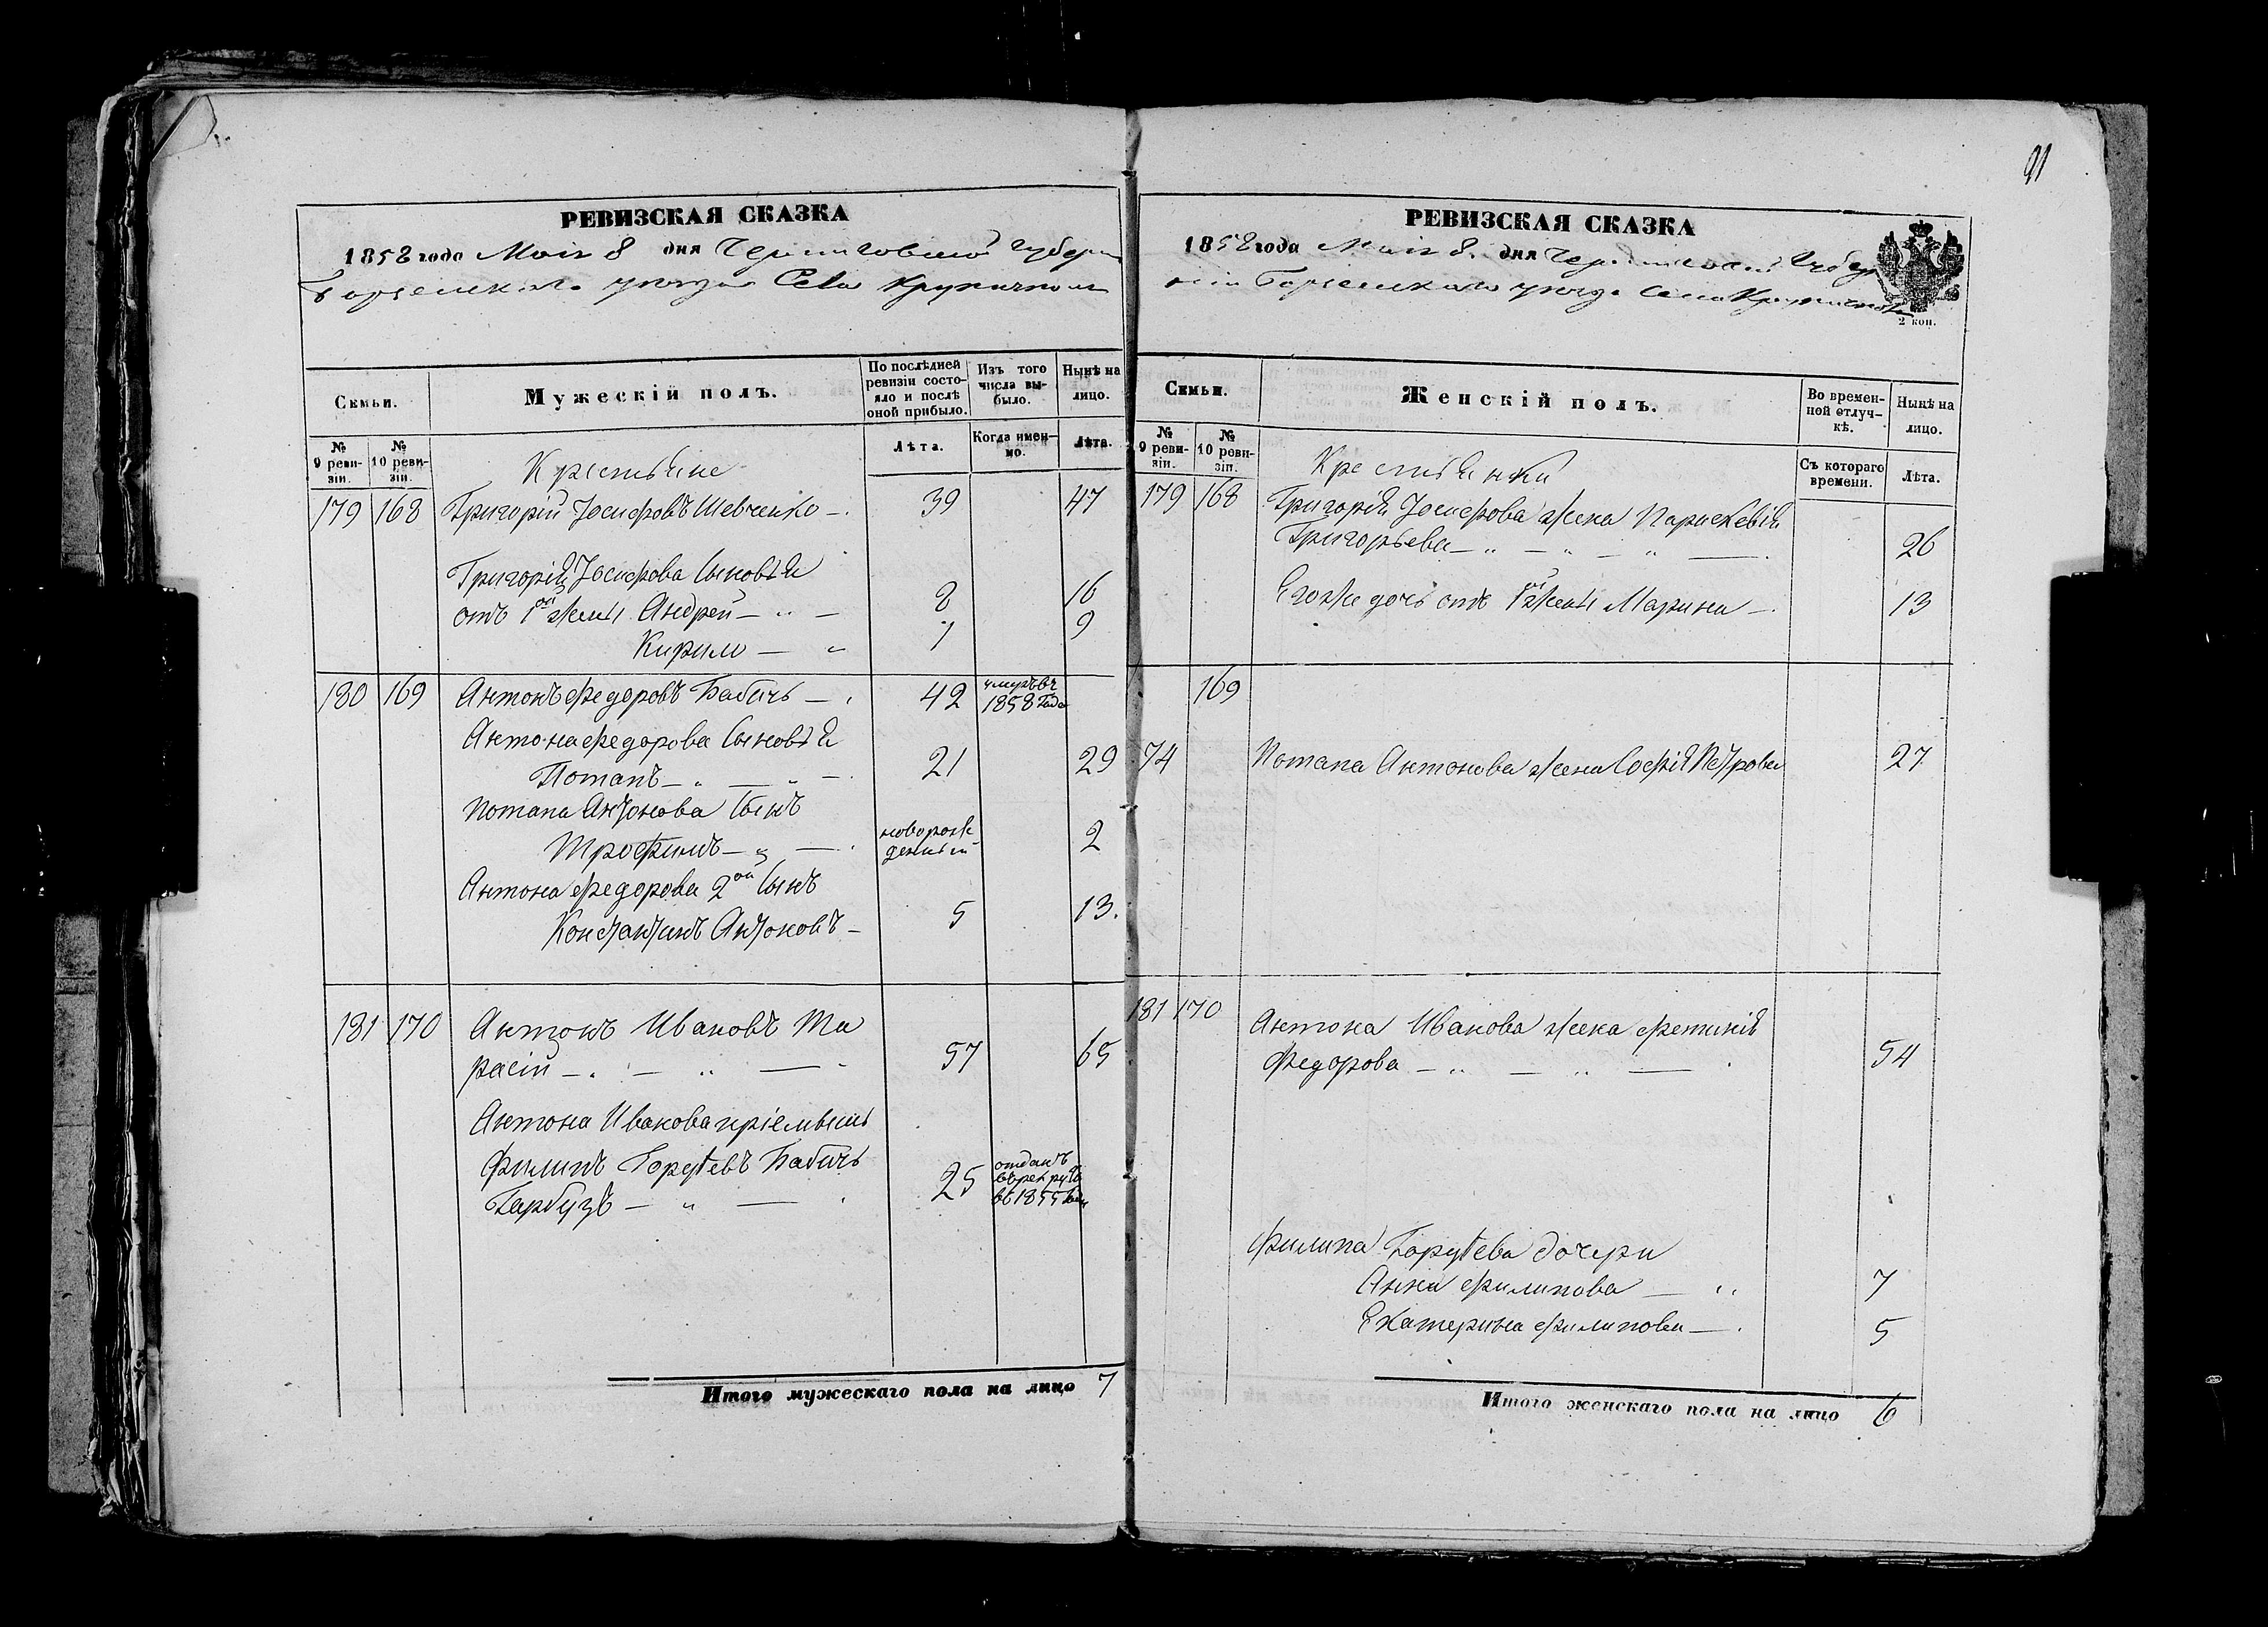 91
РЕВИЗСКАЯ СКАЗКА
1858 года Маія 8 дня Черниговской Губерніи
Борзенскаго уезда Села Крупичполя
Семьи.
Мужескій полъ.
По послѣдней ревизіи состояло и послѣ оной прибыло.
Изъ того числа выбыло.
Нынѣ на лицо.
№ 9 ревизіи.
№ 10 ревизіи.
Лѣта.
Когда именно.
Лѣта.
Крестьяне
179 168 Григорій Іосифовъ Шевченко — 39 47
Григорія Іосифова сыновья
отъ 1ой жены Андрей — " — 8 16
Кирило — " 1 9
180 169 Антонъ Федоровъ Бабичь — 42 умръ въ 1858 годе
Антона Федорова сыновья
Потапъ — " — " — 21 29
Потапа Антонова сынъ
Трофимъ — " — новорожденный 2
Антона Федорова 2ой сынъ
Константинъ Антоновъ — 5 13.
181 170 Антонъ Ивановъ Та
расій — " — " — 57 65
Антона Иванова пріемышъ
Филипъ Бабичь
Гарбузъ — " — 25 отданъ в рекруты в 1855 году
Итого мужескаго пола на лицо 7
РЕВИЗСКАЯ СКАЗКА
1858 года Маія 8. дня Черниговской Губер
ніи Борзенскаго уезда Села Крупичполя
2 коп.
Семьи.
Женскій полъ.
Во временной отлучкѣ.
Нынѣ на лицо.
№ 9 ревизіи.
№ 10 ревизіи.
Съ котораго времени.
Лѣта.
Крестьянки
179 168 Григорія Іосифова жена Параскевія
Григорьева — " — " — " — 26
Его же дочь отъ 1ой жены Марина — 13
169
74 Потапа Антонова жена Софія Петрова 27
181 170 Антона Иванова жена Фетинія
Федорова — " — " — 54
Филипа дочери
Анна Филипова — " 7
Екатерина Филипова — 5
Итого женскаго пола на лицо 6